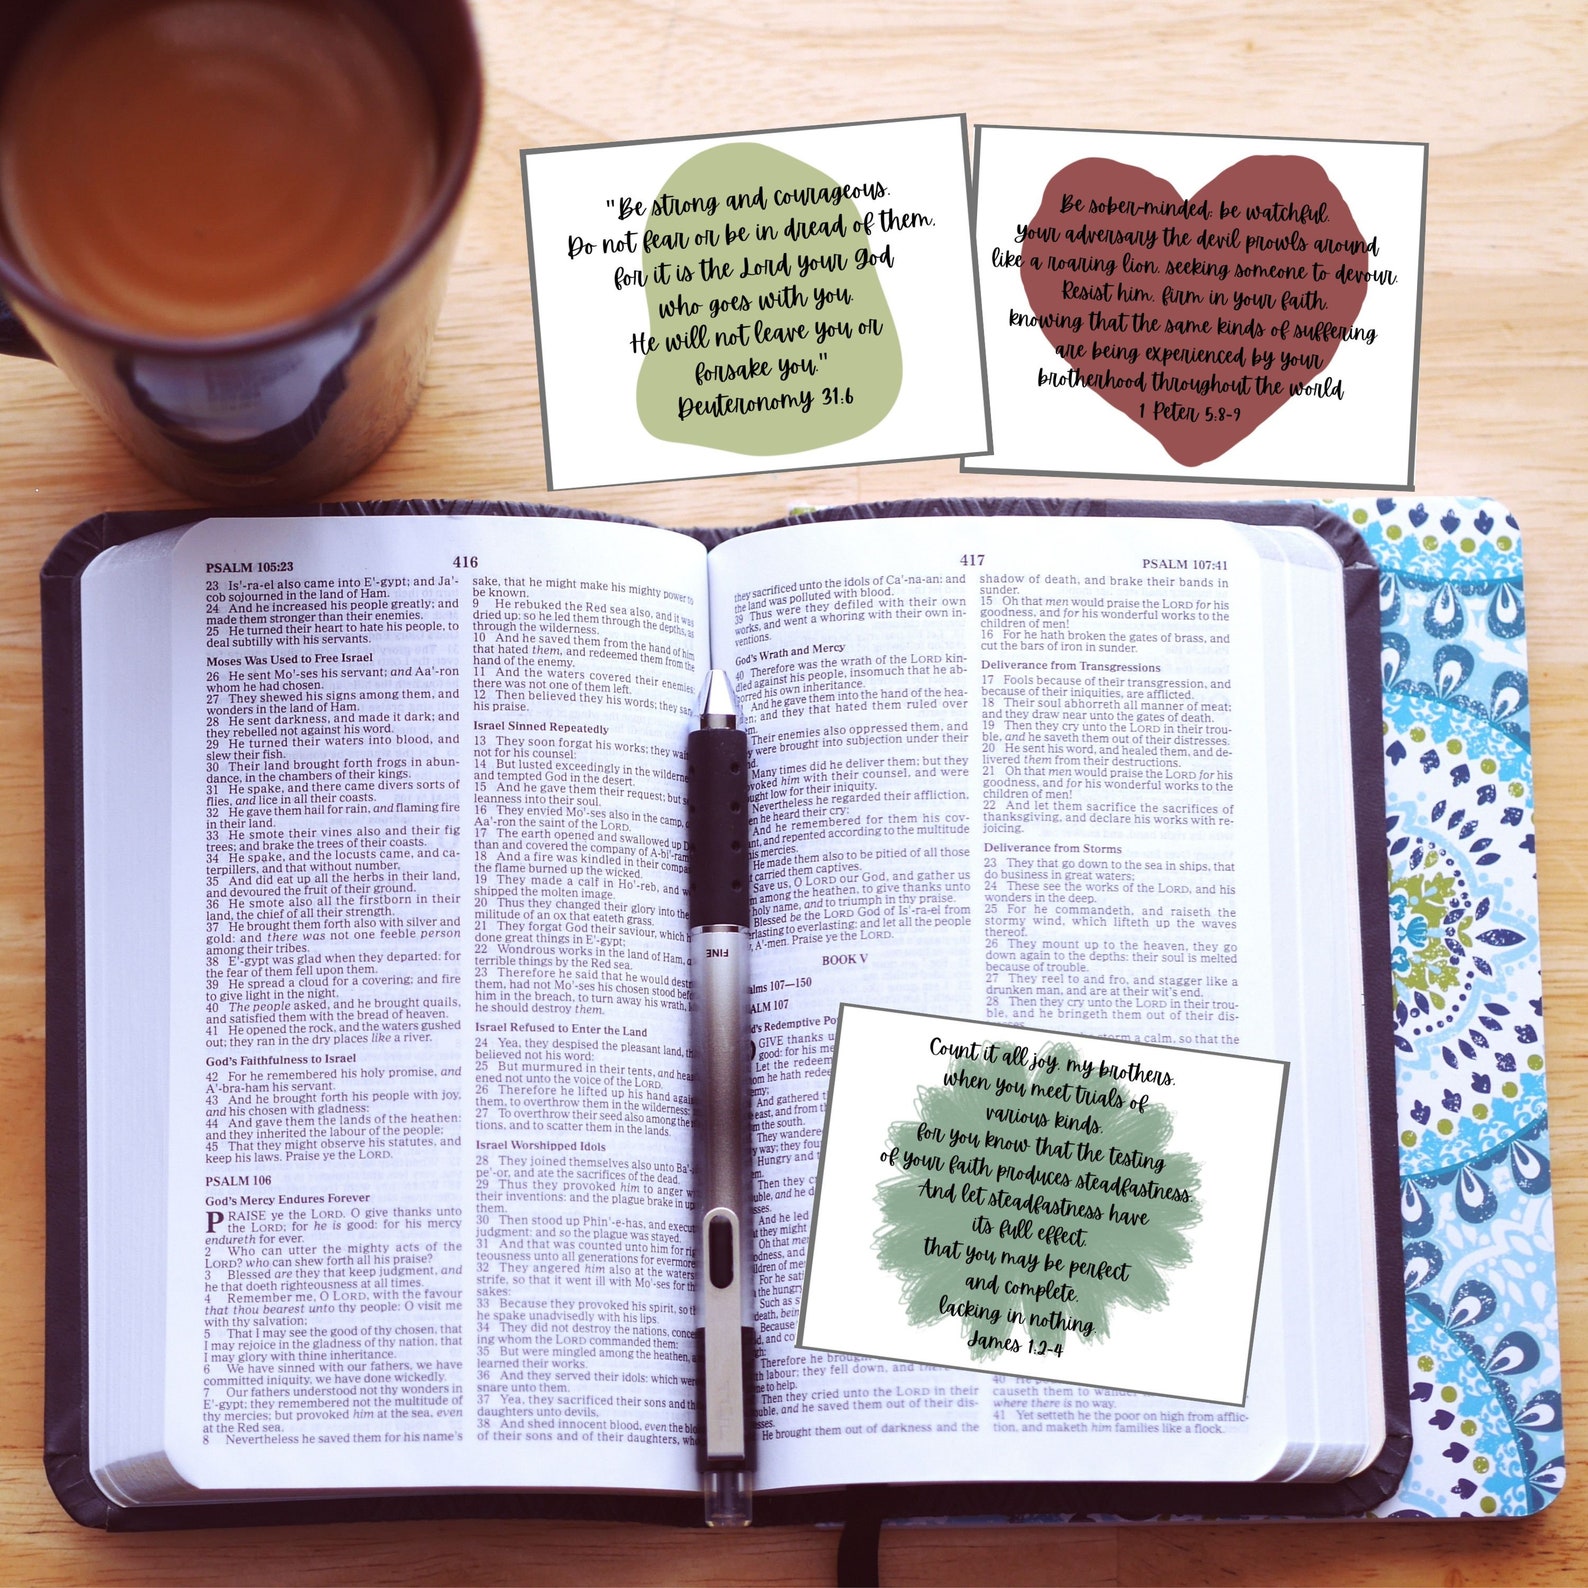 "Be strong and courageous.
Do not fear or be in dread of them,
for it is the Lord your God
who goes with you.
He will not leave you or
forsake you."
Deuteronomy 31:6
Be sober-minded; be watchful.
your adversary the devil prowls around
like a roaring lion, seeking someone to devour.
Resist him, firm in your faith,
knowing that the same kinds of suffering
are being experienced by your
brotherhood throughout the world
1 Peter 5:8-9
PSALM 105:23
416
23 Is'-ra-el also came into E'-gypt; and Ja'-
cob sojourned in the land of Ham.
24 And he increased his people greatly; and
made them stronger than their enemies.
25 He turned their heart to hate his people, to
deal subtilly with his servants.
Moses Was Used to Free Israel
26 He sent Mo'-ses his servant; and Aa'-ron
whom he had chosen.
27 They shewed his signs among them, and
wonders in the land of Ham.
28 He sent darkness, and made it dark; and
they rebelled not against his word.
29 He turned their waters into blood, and
slew their fish.
30 Their land brought forth frogs in abun-
dance, in the chambers of their kings.
31 He spake, and there came divers sorts of
flies, and lice in all their coasts.
32 He gave them hail for rain, and flaming fire
in their land.
33 He smote their vines also and their fig
trees; and brake the trees of their coasts.
34 He spake, and the locusts came, and ca-
terpillers, and that without number.
35 And did eat up all the herbs in their land,
and devoured the fruit of their ground.
36 He smote also all the firstborn in their
land, the chief of all their strength.
37 He brought them forth also with silver and
gold: and there was not one feeble person
among their tribes.
38 E'-gypt was glad when they departed: for
the fear of them fell upon them.
39 He spread a cloud for a covering; and fire
to give light in the night.
40 The people asked, and he brought quails,
and satisfied them with the bread of heaven.
41 He opened the rock, and the waters gushed
out; they ran in the dry places like a river.
God's Faithfulness to Israel
42 For he remembered his holy promise, and
A'-bra-ham his servant.
43 And he brought forth his people with joy,
and his chosen with gladness:
44 And gave them the lands of the heathen:
and they inherited the labour of the people;
45 That they might observe his statutes, and
keep his laws. Praise ye the LORD.
PSALM 106
God's Mercy Endures Forever
PRAISE ye the LORD. O give thanks unto
the LORD; for he is good: for his mercy
endureth for ever.
2 Who can utter the mighty acts of the
LORD? who can shew forth all his praise?
3 Blessed are they that keep judgment, and
he that doeth righteousness at all times.
4 Remember me, O LORD, with the favour
that thou bearest unto thy people: O visit me
with thy salvation;
5 That I may see the good of thy chosen, that
I may rejoice in the gladness of thy nation, that
I may glory with thine inheritance.
6 We have sinned with our fathers, we have
committed iniquity, we have done wickedly.
7 Our fathers understood not thy wonders in
E'-gypt; they remembered not the multitude of
thy mercies; but provoked him at the sea, even
at the Red sea.
8 Nevertheless he saved them for his name's
sake, that he might make his mighty power to
be known.
9 He rebuked the Red sea also, and it was
dried up: so he led them through the depths, as
through the wilderness.
10 And he saved them from the hand of him
that hated them, and redeemed them from the
hand of the enemy.
11 And the waters covered their enemies:
there was not one of them left.
12 Then believed they his words; they sang
his praise.
Israel Sinned Repeatedly
13 They soon forgat his works; they
not for his counsel:
14 But lusted exceedingly in the
and tempted God in the desert.
15 And he gave them their request; but
leanness into their soul.
16 They envied Mo'-ses also in the camp,
Aa'-ron the saint of the LORD.
17 The earth opened and swallowed up
than and covered the company of
18 And a fire was kindled in their
the flame burned up the wicked.
19 They made a calf in Ho'-reb, and
shipped the molten image.
20 Thus they changed their glory into the
militude of an ox that eateth grass.
21 They forgat God their saviour, which
done great things in E'-gypt;
22 Wondrous works in the land of Ham,
terrible things by the Red sea.
23 Therefore he said that he would
them, had not Mo'-ses his chosen stood
him in the breach, to turn away his wrath,
he should destroy them.
Israel Refused to Enter the Land
24 Yea, they despised the pleasant land,
believed not his word:
25 But murmured in their tents, and
ened not unto the voice of the LORD.
26 Therefore he lifted up his hand
them, to overthrow them in the wilderness:
27 To overthrow their seed also among the
tions, and to scatter them in the lands.
Israel Worshipped Idols
28 They joined themselves also unto
pe'-or, and ate the sacrifices of the dead.
29 Thus they provoked him to anger
their inventions: and the plague brake in
them.
30 Then stood up Phin'-e-has, and
judgment: and so the plague was stayed.
31 And that was counted unto him for
teousness unto all generations for
32 They angered him also at the waters
strife, so that it went ill with Mo'-ses for
sakes:
33 Because they provoked his spirit, so
he spake unadvisedly with his lips.
34 They did not destroy the nations,
ing whom the LORD commanded them:
35 But were mingled among the heathen,
learned their works.
36 And they served their idols: which
snare unto them.
37 Yea, they sacrificed their sons and
daughters unto devils,
38 And shed innocent blood, even the
of their sons and of their daughters,
FINE
417
PSALM 107:41
they sacrificed unto the idols of Ca'-na-an: and
the land was polluted with blood.
39 Thus were they defiled with their own
works, and went a whoring with their own in-
ventions.
God's Wrath and Mercy
40 Therefore was the wrath of the LORD kin-
dled against his people, insomuch that he ab-
horred his own inheritance.
And he gave them into the hand of the hea-
and they that hated them ruled over
Their enemies also oppressed them, and
were brought into subjection under their
Many times did he deliver them; but they
him with their counsel, and were
low for their iniquity.
Nevertheless he regarded their affliction,
he heard their cry:
And he remembered for them his cov-
and repented according to the multitude
mercies.
He made them also to be pitied of all those
carried them captives.
Save us, O LORD our God, and gather us
among the heathen, to give thanks unto
holy name, and to triumph in thy praise.
Blessed be the LORD God of Is'-ra-el from
to everlasting: and let all the people
A'-men. Praise ye the LORD.
BOOK V
107—150
107
Redemptive
GIVE thanks
good: for his
Let the
he hath
And gathered
east, and from
the south.
They
way; they
Hungry and
Then they
and he
And he led
they might
Oh that men
and
of
For he
the hungry
Such as
death,
Because
and
Therefore he
labour; they fell down, and
to help.
Then they cried unto the LORD in their
and he saved them out of their dis-
He brought them out of darkness and the
shadow of death, and brake their bands in
sunder.
15 Oh that men would praise the LORD for his
goodness, and for his wonderful works to the
children of men!
16 For he hath broken the gates of brass, and
cut the bars of iron in sunder.
Deliverance from Transgressions
17 Fools because of their transgression, and
because of their iniquities, are afflicted.
18 Their soul abhorreth all manner of meat;
and they draw near unto the gates of death.
19 Then they cry unto the LORD in their trou-
ble, and he saveth them out of their distresses.
20 He sent his word, and healed them, and de-
livered them from their destructions.
21 Oh that men would praise the LORD for his
goodness, and for his wonderful works to the
children of men!
22 And let them sacrifice the sacrifices of
thanksgiving, and declare his works with re-
joicing.
Deliverance from Storms
23 They that go down to the sea in ships, that
do business in great waters;
24 These see the works of the LORD, and his
wonders in the deep.
25 For he commandeth, and raiseth the
stormy wind, which lifteth up the waves
thereof.
26 They mount up to the heaven, they go
down again to the depths: their soul is melted
because of trouble.
27 They reel to and fro, and stagger like a
drunken man, and are at their wit's end.
28 Then they cry unto the LORD in their trou-
ble, and he bringeth them out of their dis-
storm a calm, so that the
Count it all joy, my brothers,
when you meet trials of
various kinds,
for you know that the testing
of your faith produces steadfastness.
And let steadfastness have
its full effect,
that you may be perfect
and complete,
lacking in nothing.
James 1:2-4
40 He
causeth them to wander
where there is no way.
41 Yet setteth he the poor on high from afflic-
tion, and maketh him families like a flock.